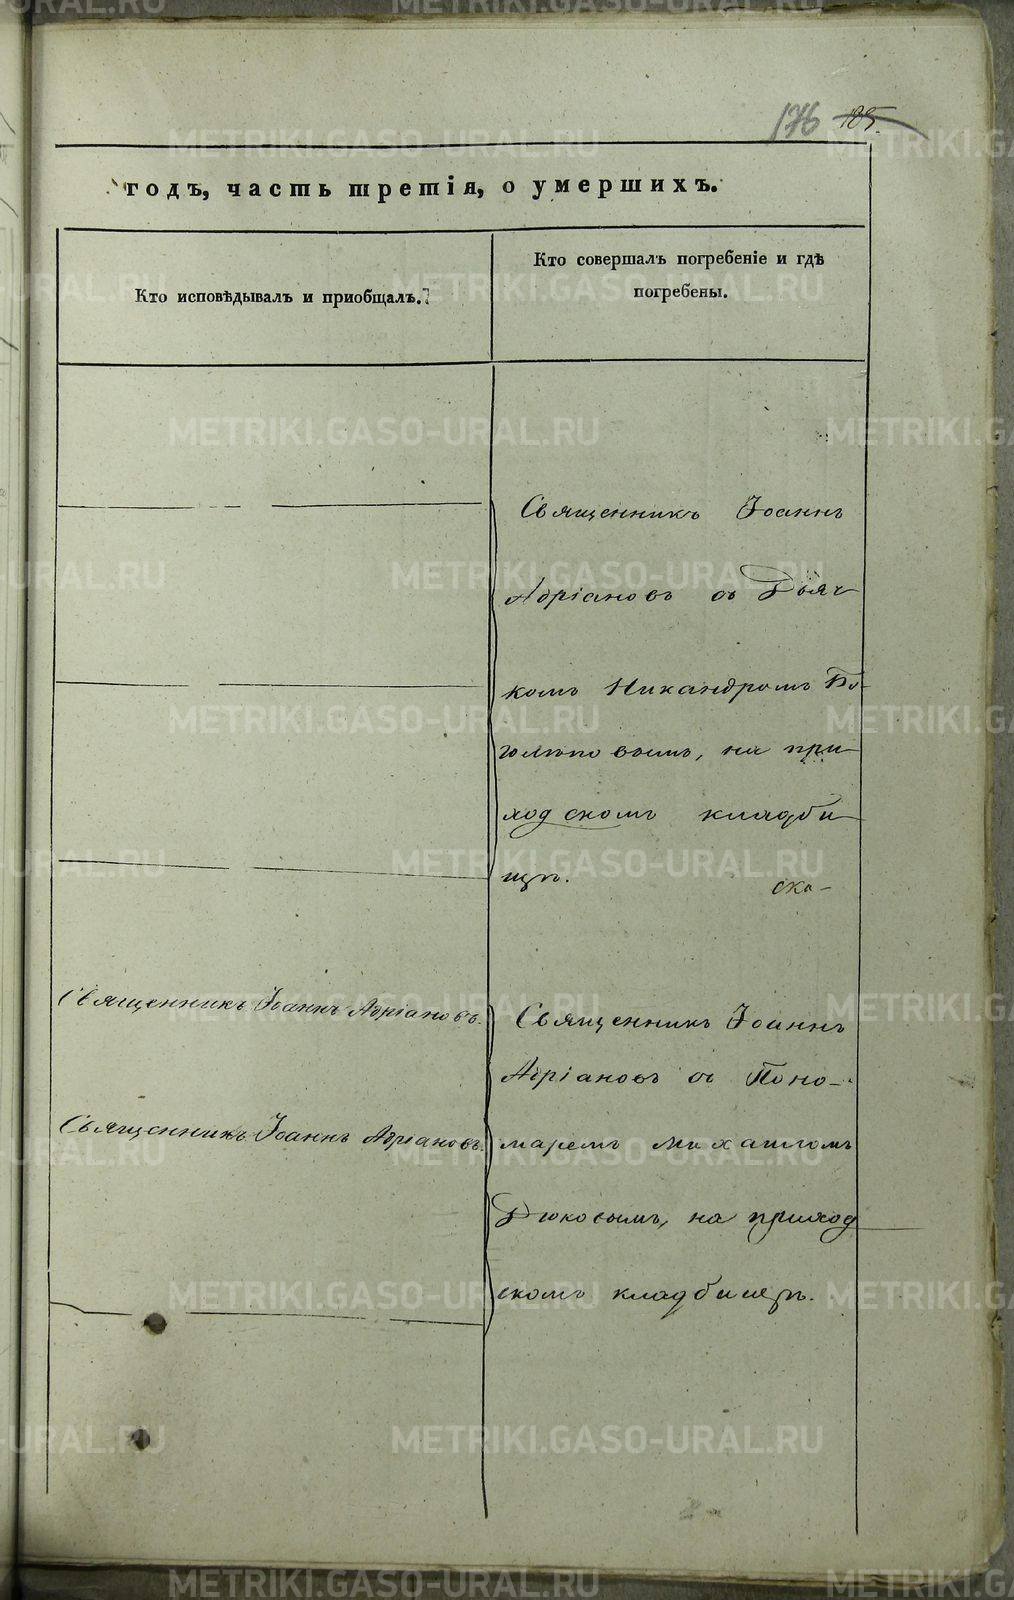 176 185.
годъ, часть третія, о умершихъ.
Кто исповѣдывалъ и приобщалъ.
Кто совершалъ погребеніе и гдѣ
погребены.
Священникъ Іоаннъ
Адріановъ съ Дьяч
комъ Никандромъ Бо-
голѣповымъ, на при
ходскомъ кладби
щѣ.
ско-
Священникъ Іоаннъ Адріановъ.
Священникъ Іоаннъ
Адріановъ съ Поно-
Священникъ Іоаннъ Адріановъ.
маремъ Михаиломъ
Дюковымъ, на приход
скомъ кладбищѣ.
METRIKI.GASO-URAL.RU